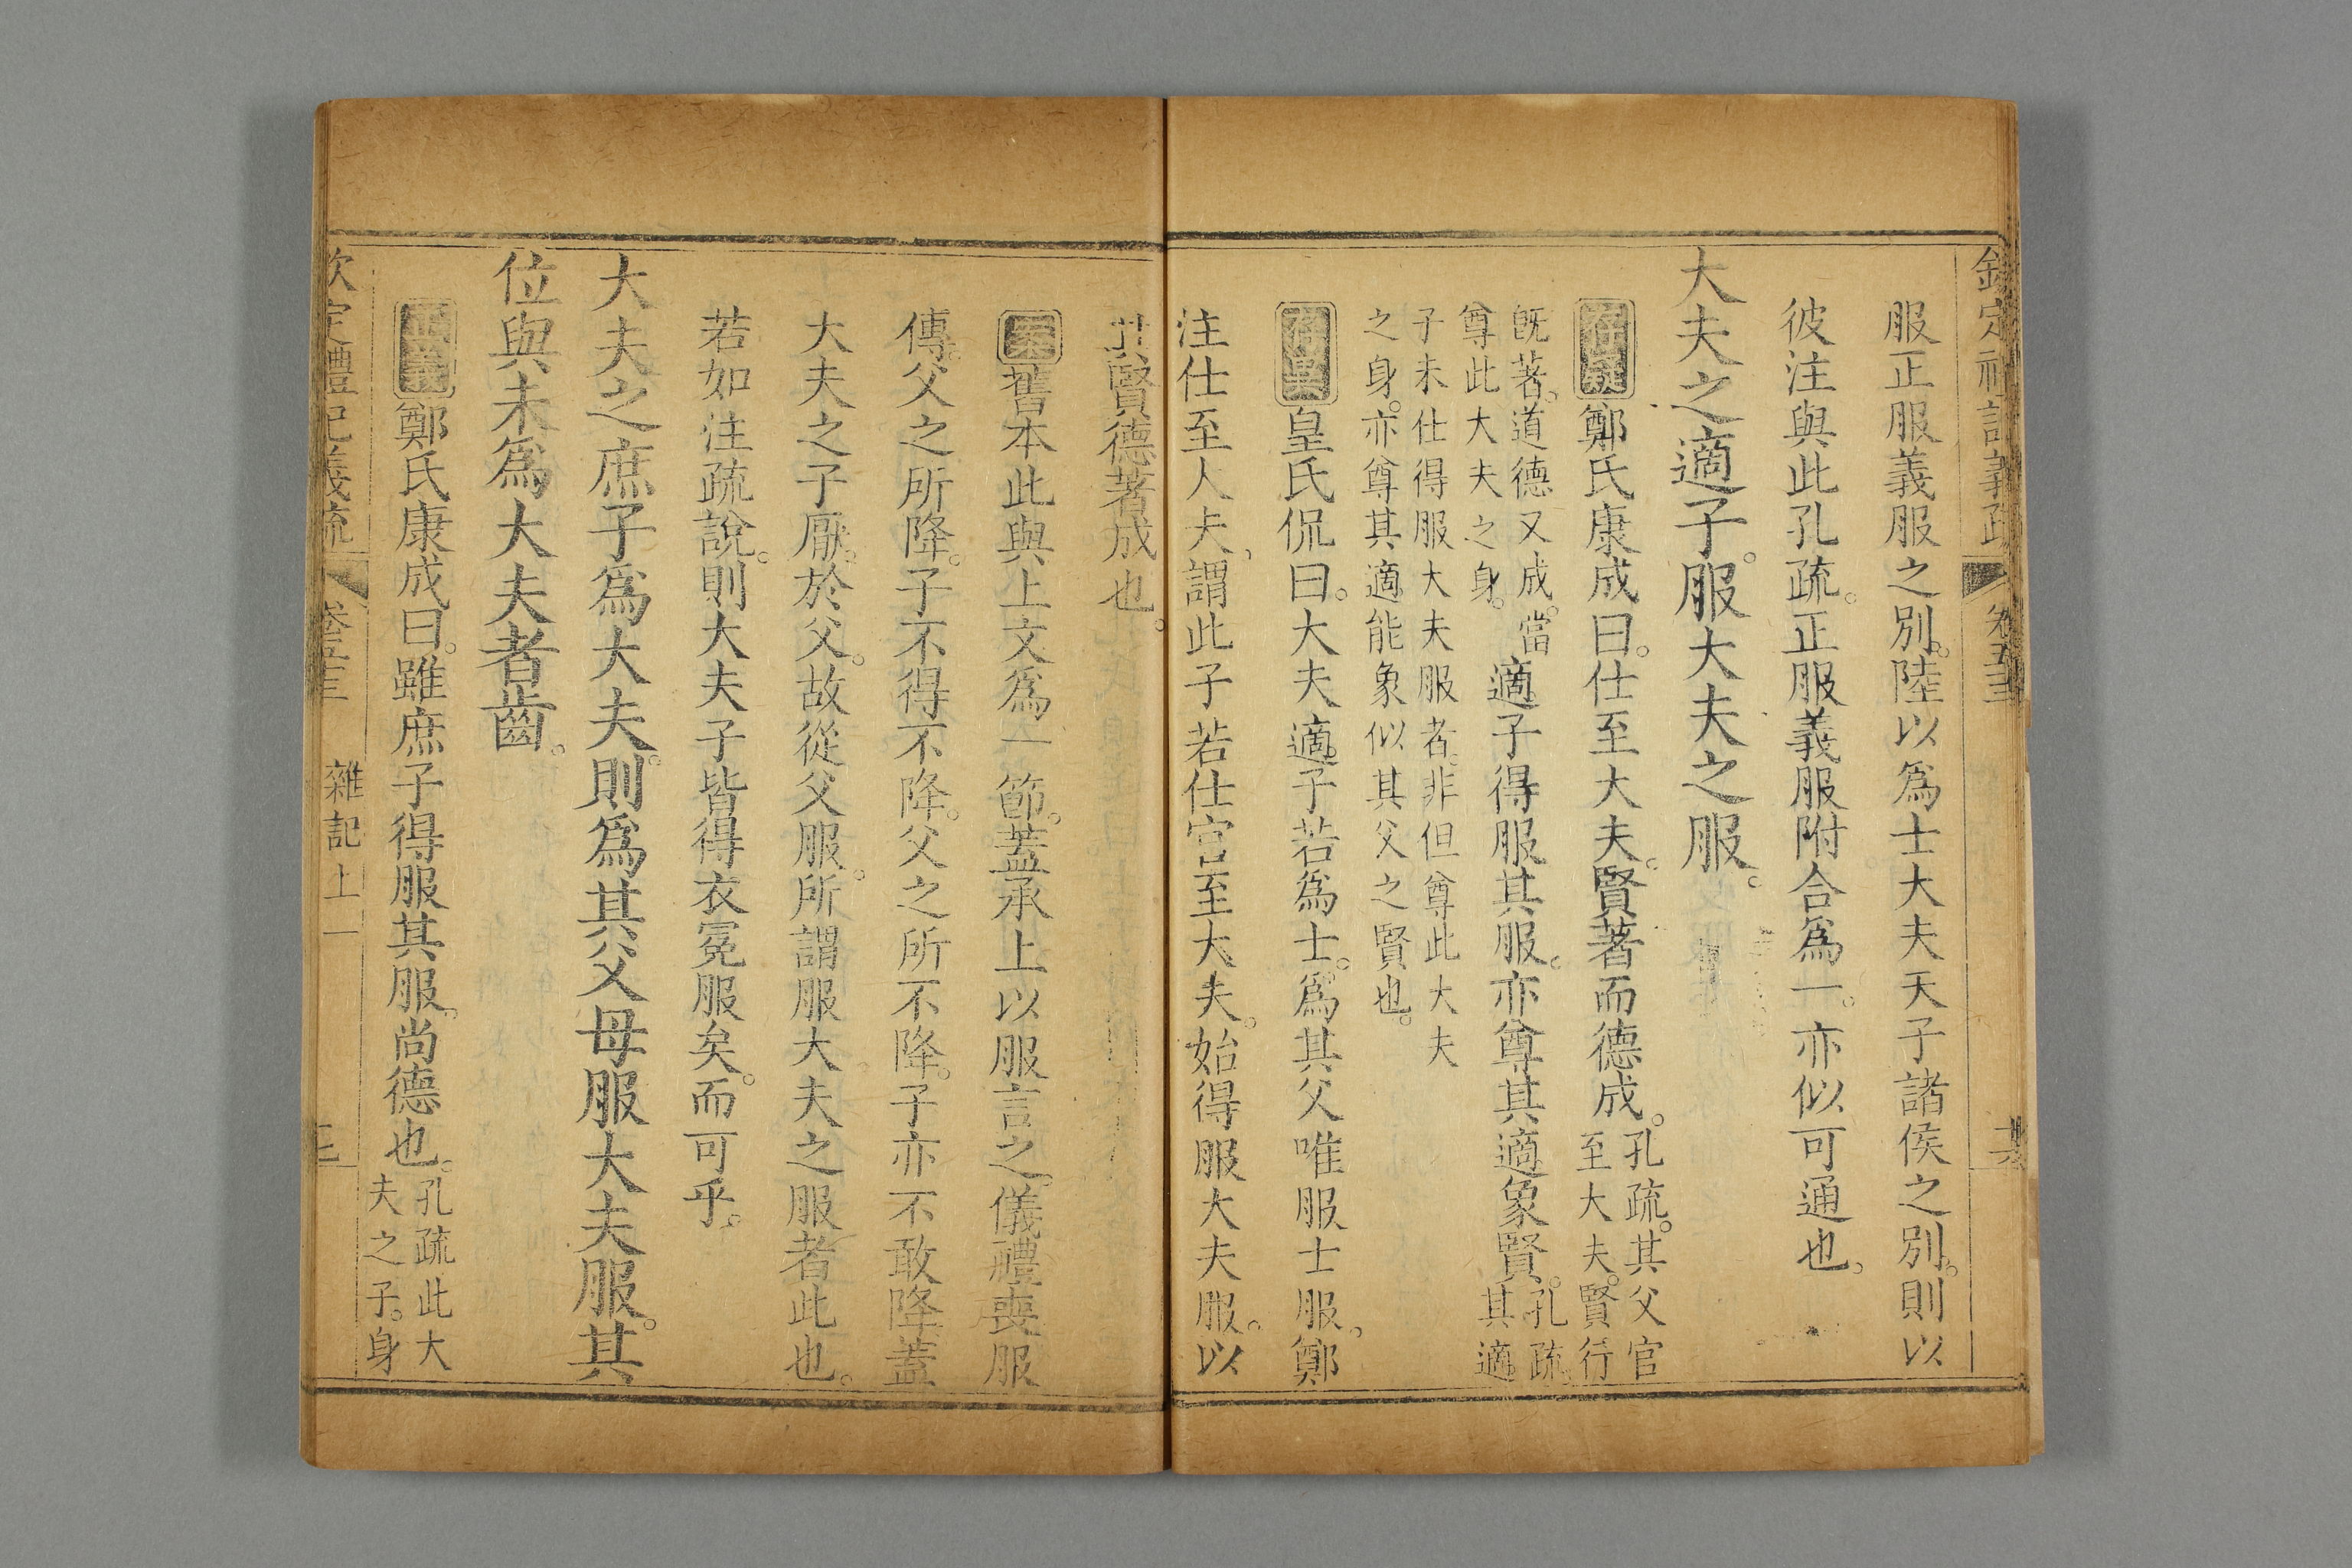 服正服義服之別。陸以為士大夫天子諸侯之別。則以
彼注與此孔疏。正服義服附合為一。亦似可通也。
大夫之適子。服大夫之服。
存疑鄭氏康成曰。仕至大夫。賢著而德成。孔疏。其父官至大夫。賢行
既著。道德又成。當尊此大夫之身。適子得服其服。亦尊其適象賢。孔疏。其適
子未仕得服大夫服者。非但尊此大夫之身。亦尊其適能象似其父之賢也。
存異皇氏侃曰。大夫適子若為士。為其父唯服士服。鄭
注仕至大夫。謂此子若仕官至大夫。始得服大夫服。以
其賢德著成也。
案舊本此與上文為一節。蓋承上以服言之。儀禮喪服
傳。父之所降。子不得不降。父之所不降。子亦不敢降。蓋
大夫之子厭於父。故從父服。所謂服大夫之服者此也。
若如注疏說。則大夫子皆得衣冕服矣。而可乎。
大夫之庶子為大夫。則為其父母服大夫服。其
位與未為大夫者齒。
正義鄭氏康成曰。雖庶子得服其服。尚德也。孔疏此大夫之子。身
欽定禮記義疏 卷五十三 雜記上